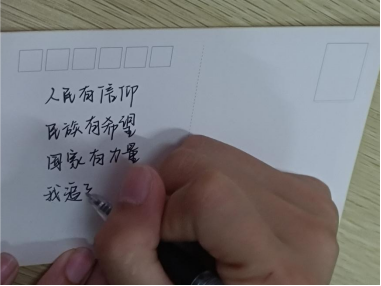 人民有信仰
民族有希望
国家有力量
我